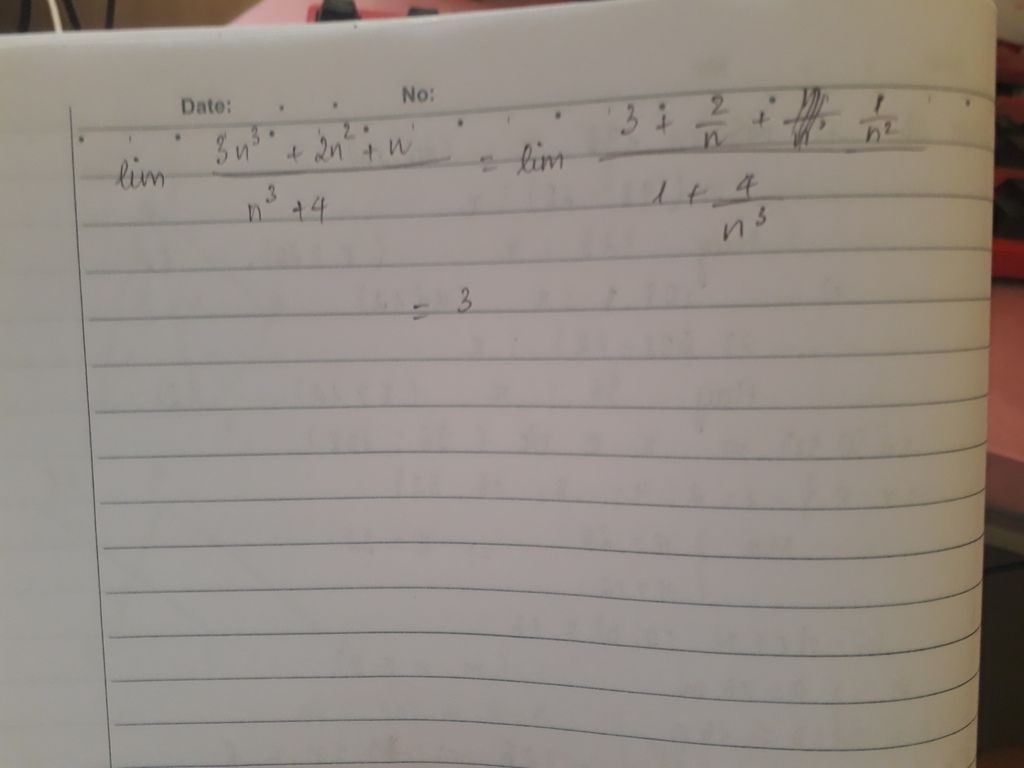 Date: No:
lim (3n³ + 2n² + n) / (n³ + 4) = lim (3 + 2/n + 1/n²) / (1 + 4/n³)
= 3